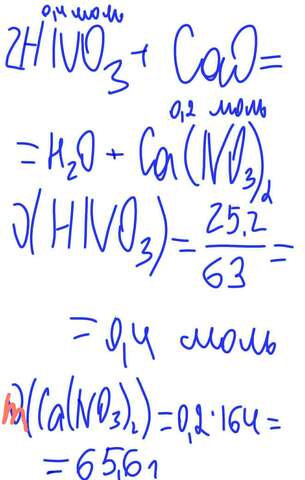 0,4 моль
2HNO3 + CaO =
0,2 моль
= H2O + Ca(NO3)2
υ(HNO3) = 25,2/63 =
= 0,4 моль
m(Ca(NO3)2) = 0,2·164 =
= 65,61